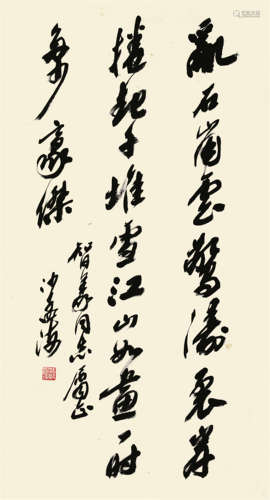 亂石崩雲驚濤裂岸
捲起千堆雪江山如畫一時
多少豪傑
智同志屬正
沙孟海